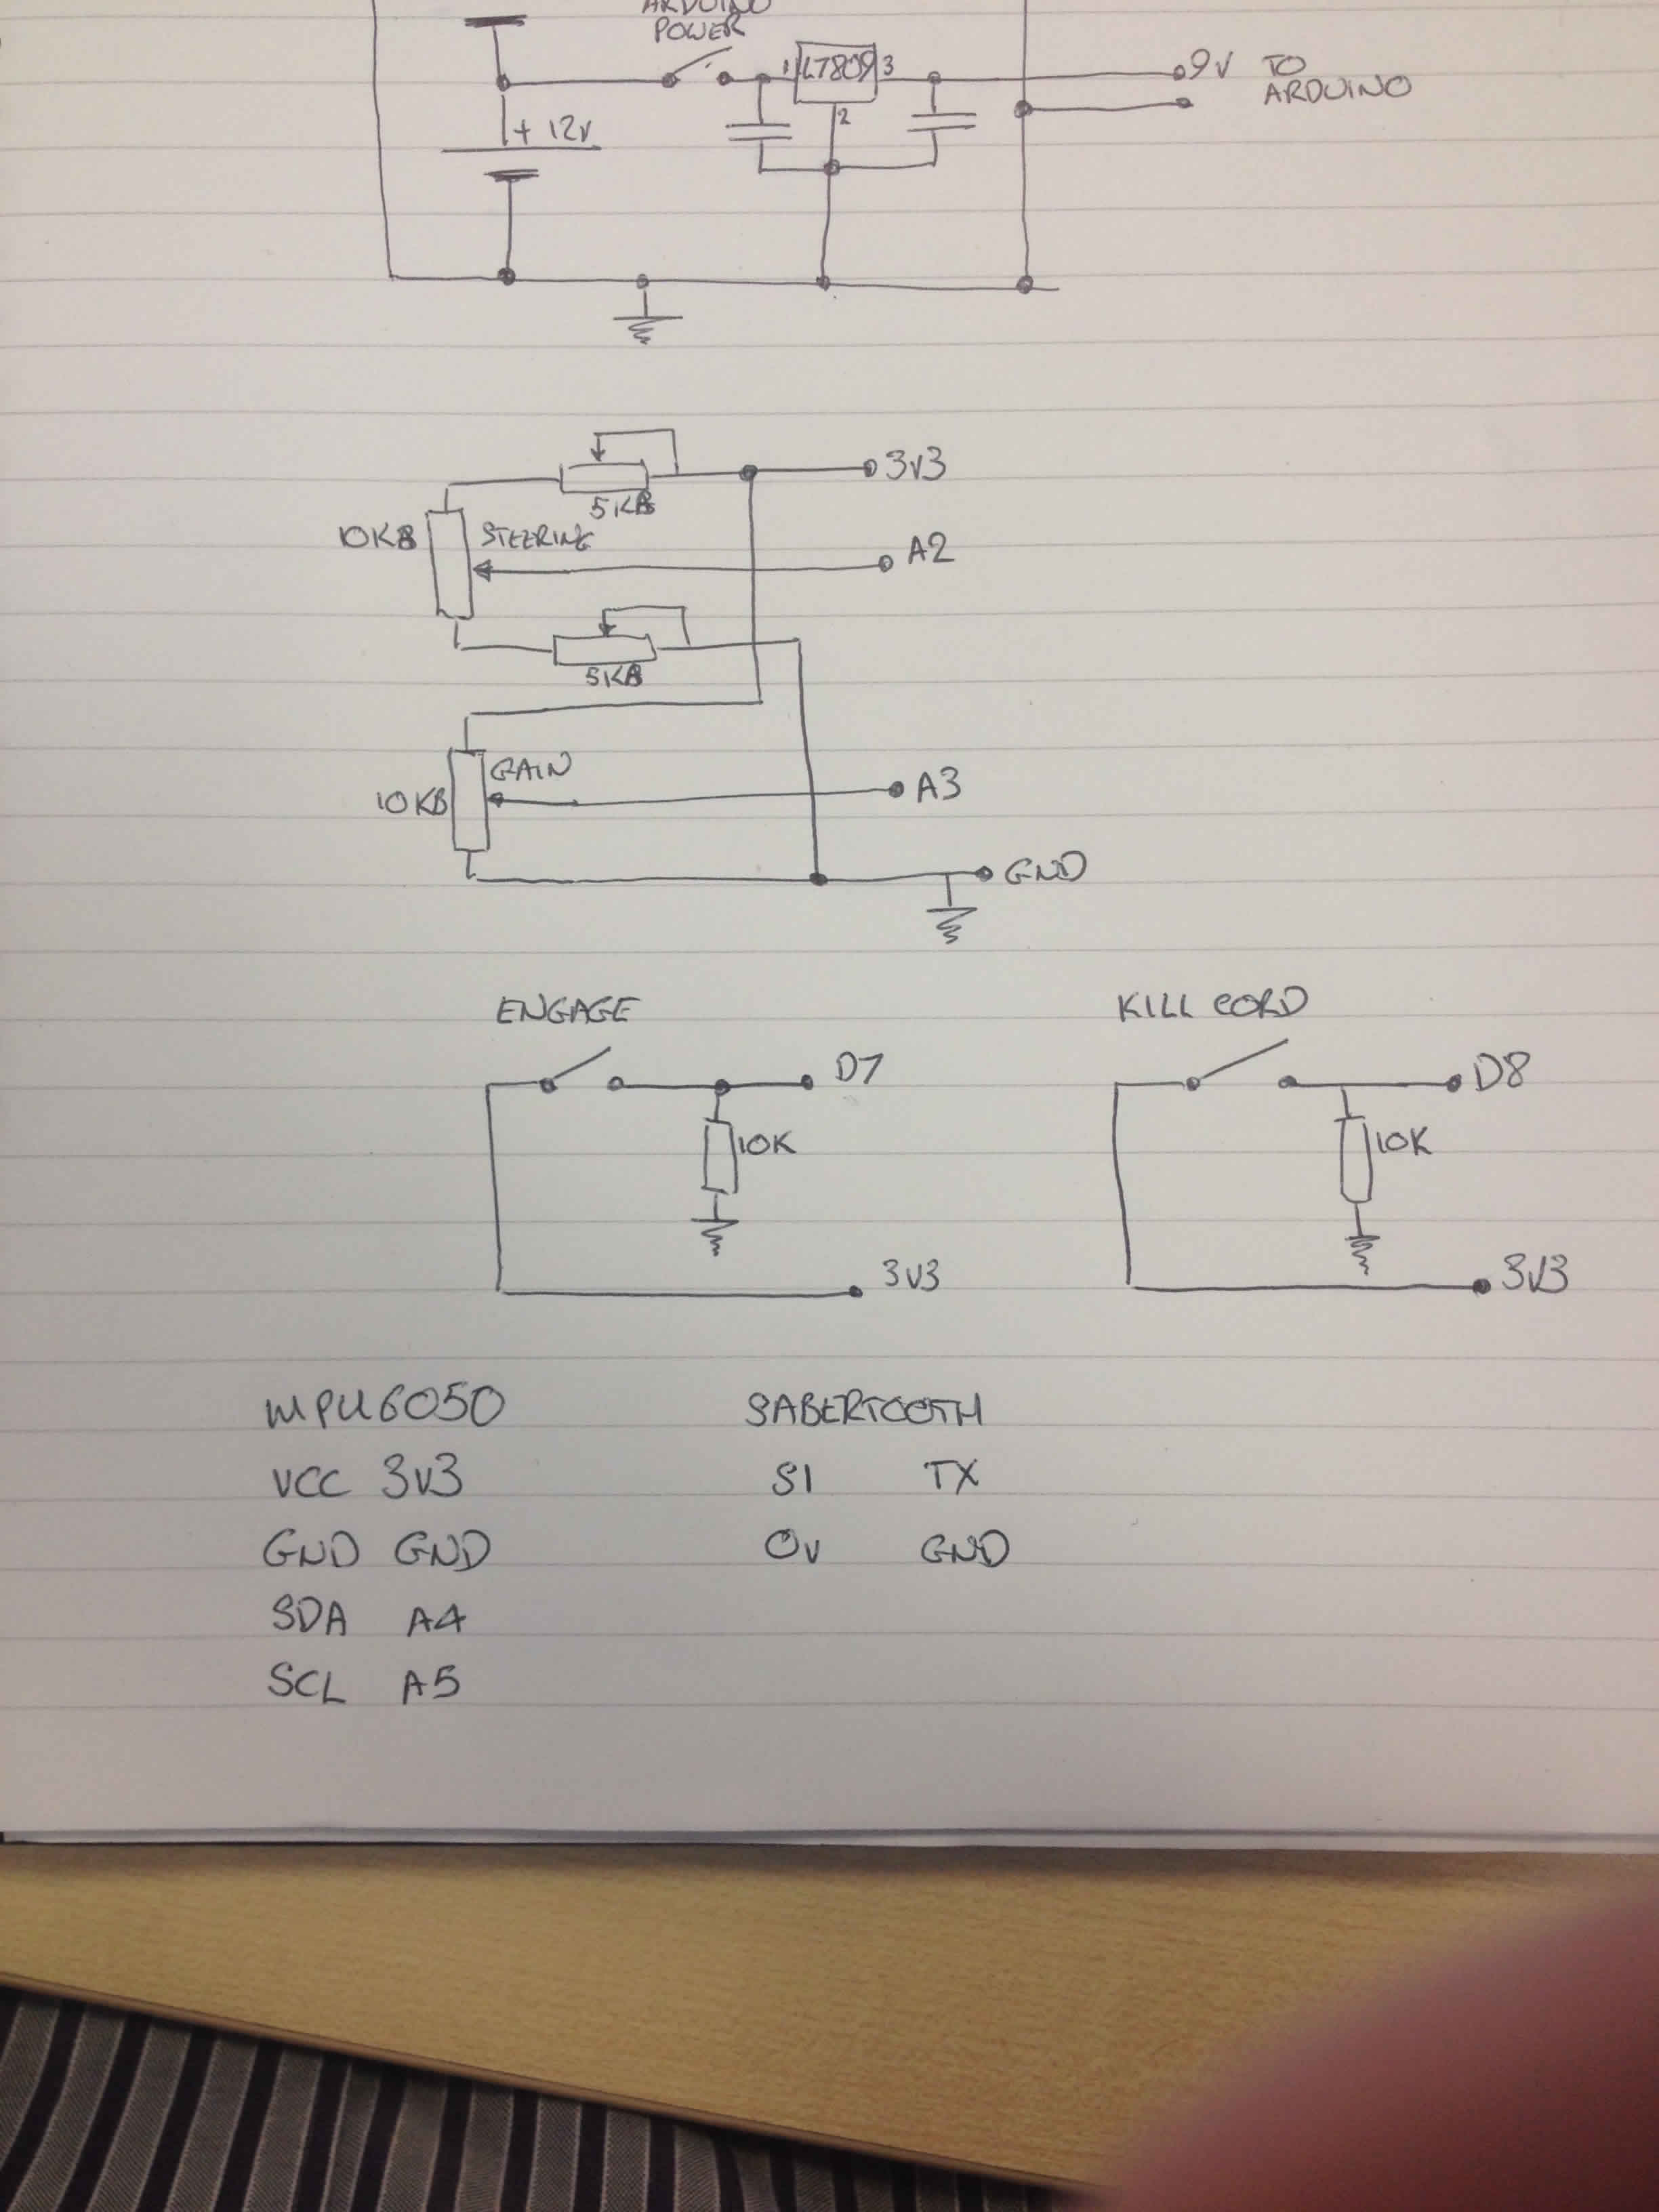 ARDUINO
POWER
1 LT809 3
2
+ 12V
9V TO
ARDUINO
3V3
5KB
10KB STEERING
A2
5KB
GAIN
10KB
A3
GND
ENGAGE
D7
10K
3V3
KILL CORD
D8
10K
3V3
MPU6050
VCC 3V3
GND GND
SDA A4
SCL A5
SABERTOOTH
S1 TX
0V GND